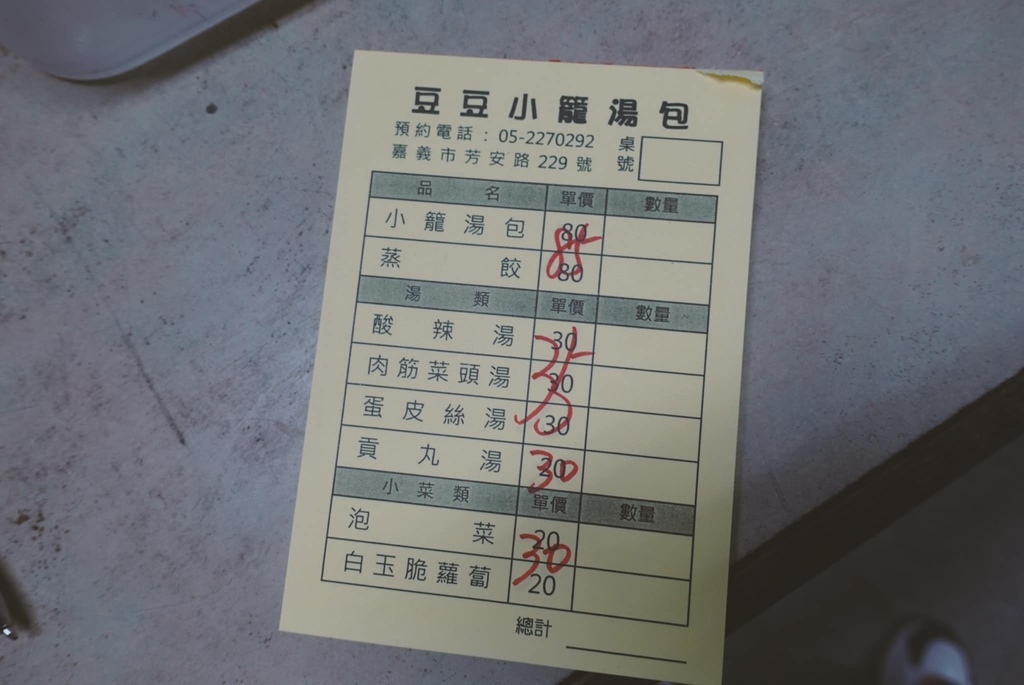 豆豆小籠湯包
預約電話：05-2270292
嘉義市芳安路229號
桌號
品名 單價 數量
小籠湯包 80
85
蒸餃 80
湯類 單價 數量
酸辣湯 30
肉筋菜頭湯 30
蛋皮絲湯 30
貢丸湯 20
30
小菜類 單價 數量
泡菜 20
30
白玉脆蘿蔔 20
總計